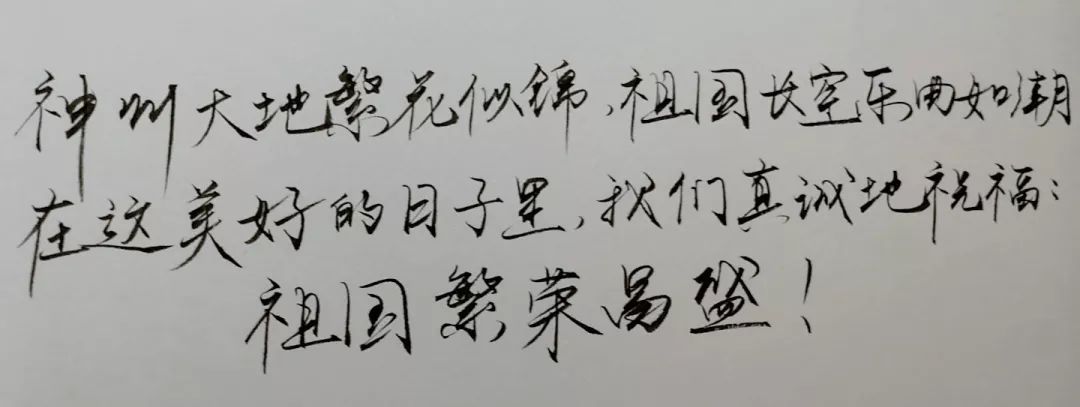 神州大地繁花似锦,祖国长空乐曲如潮
在这美好的日子里,我们真诚地祝福:
祖国繁荣昌盛!